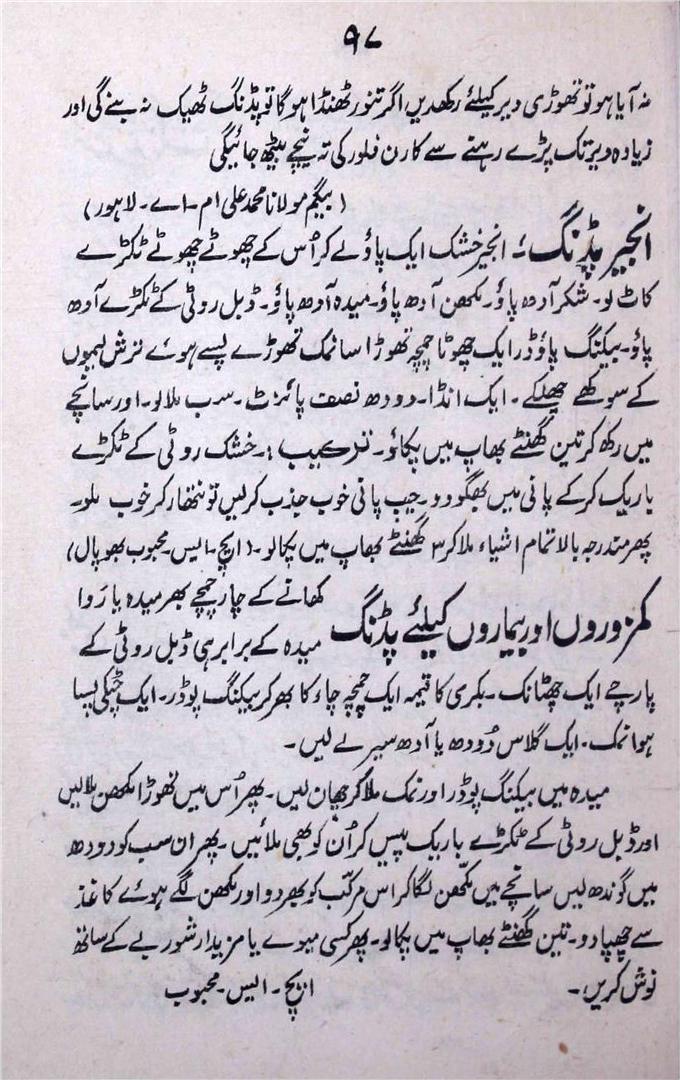 ۹۷
نہ آیا ہو تو تھوڑی دیر کیلئے رکھدیں اگر تنور ٹھنڈا ہو گا تو پڈنگ ٹھیک نہ بنے گی اور
زیادہ دیر تک پڑے رہنے سے کارن فلور کی تہ نیچے بیٹھ جائیگی
(بیگم مولانا محمد علی ام۔اے۔ لاہور)
انجیر پڈنگ:۔ انجیر خشک ایک پاؤ لے کر اُس کے چھوٹے چھوٹے ٹکڑے
کاٹ لو۔ شکر آدھ پاؤ۔ مکھن آدھ پاؤ۔ میدہ آدھ پاؤ۔ ڈبل روٹی کے ٹکڑے آدھ
پاؤ۔ بیکنگ پاؤڈر ایک چھوٹا چمچہ تھوڑا سا نمک تھوڑے پسے ہوئے ترش لیموں
کے سوکھے چھلکے۔ ایک انڈا۔ دودھ نصف پائنٹ۔ سب ملا لو۔ اور سانچے
میں رکھ کر تین گھنٹے بھاپ میں پکاؤ۔ ترکیب:۔ خشک روٹی کے ٹکڑے
باریک کر کے پانی میں بھگو دو۔ جب پانی خوب جذب کر لیں تو نتھار کر خوب ملو۔
پھر مندرجہ بالا تمام اشیاء ملا کر ۳ گھنٹے بھاپ میں پکا لو۔ (ایچ۔ ایس۔ محبوب بھوپال)
کمزوروں اور بیماروں کیلئے پڈنگ کھانے کے چار چمچے بھر میدہ یا رَوا
میدہ کے برابر ہی ڈبل روٹی کے
پارچے ایک چھٹانک۔ بکری کا قیمہ ایک چمچہ چاء کا بھر کر بیکنگ پوڈر۔ ایک چٹکی پسا
ہوا نمک۔ ایک گلاس دُودھ یا آدھ سیر لے لیں۔
میدہ میں بیکنگ پوڈر اور نمک ملا کر چھان لیں۔ پھر اُس میں تھوڑا مکھن ملالیں
اور ڈبل روٹی کے ٹکڑے باریک پیس کر اُن کو بھی ملائیں۔ پھر ان سب کو دودھ
میں گوندھ لیں سانچے میں مکھن لگا کر اس مرکّب کو بھر دو اور مکھن لگے ہوئے کاغذ
سے چھپا دو۔ تین گھنٹے بھاپ میں پکا لو۔ پھر کسی میوے یا مزیدار شوربے کے ساتھ
نوش کریں۔ ایچ۔ ایس۔ محبوب